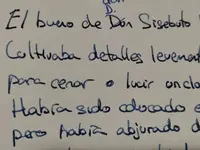 D.
El bueno de Don Sisebuto
Cultivaba detalles levemen
para cenar o lucir un cla
Había sido educado e
pero había abjurado d